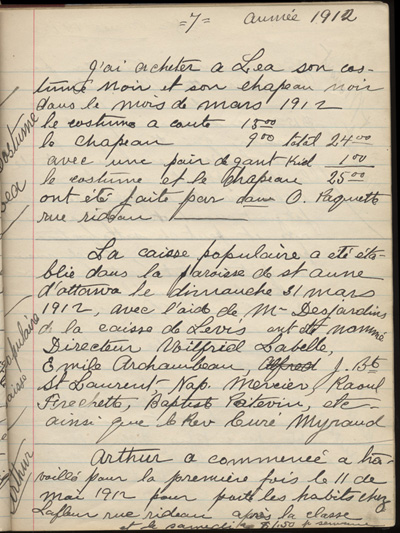 =7= année 1912
J'ai acheter a Lea son cos-
tume noir et son chapeau noir
dans le mois de mars 1912
le costume a couté 15.00
le chapeau 9.00 total 24.00
avec une pair de gant Kid 1.00
le costume et le chapeau 25.00
ont été faite par dame O. Paquette
rue rideau
La caisse populaire a eté éta-
blie dans la paroisse de st anne
d'ottawa le dimanche 31 mars
1912, avec l'aide de Mr Desjardins
de la caisse de Levis ont été nommé
Directeur Wilfrid Labelle,
Emile Archambeau, Alfrest J. Bte
St Laurent Nap. Mercier, Raoul
Frechette, Baptist Potevin, etc
ainsi que le Rev Curé Myraud
Arthur a commencé a tra-
vaillé pour la première fois le 11 de
mai 1912 pour porté les habits chez
Lafleur rue rideau après la classe
et le samedi $1.50 p semaine
costume
Lea
populaire
caisse
Arthur